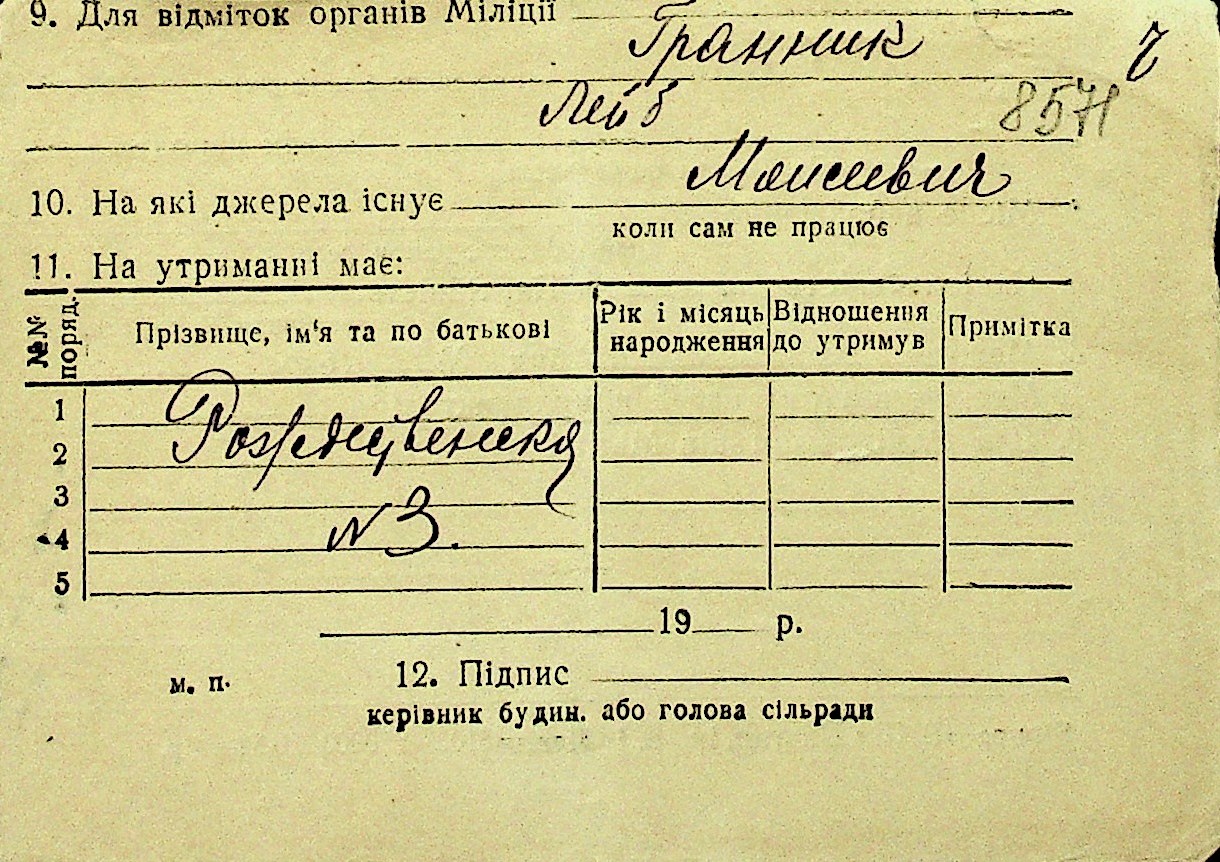 9. Для відміток органів Міліції
Гранник
Лейб
8571
Моисеевич
10. На які джерела існує
коли сам не працює
11. На утриманні має:
№№ поряд.
Прізвище, ім‘я та по батькові
Рік і місяць народження
Відношення до утримув
Примітка
1
2
3
4
5
Рождественска
N 3.
19 р.
м. п.
12. Підпис
керівник будин. або голова сільради